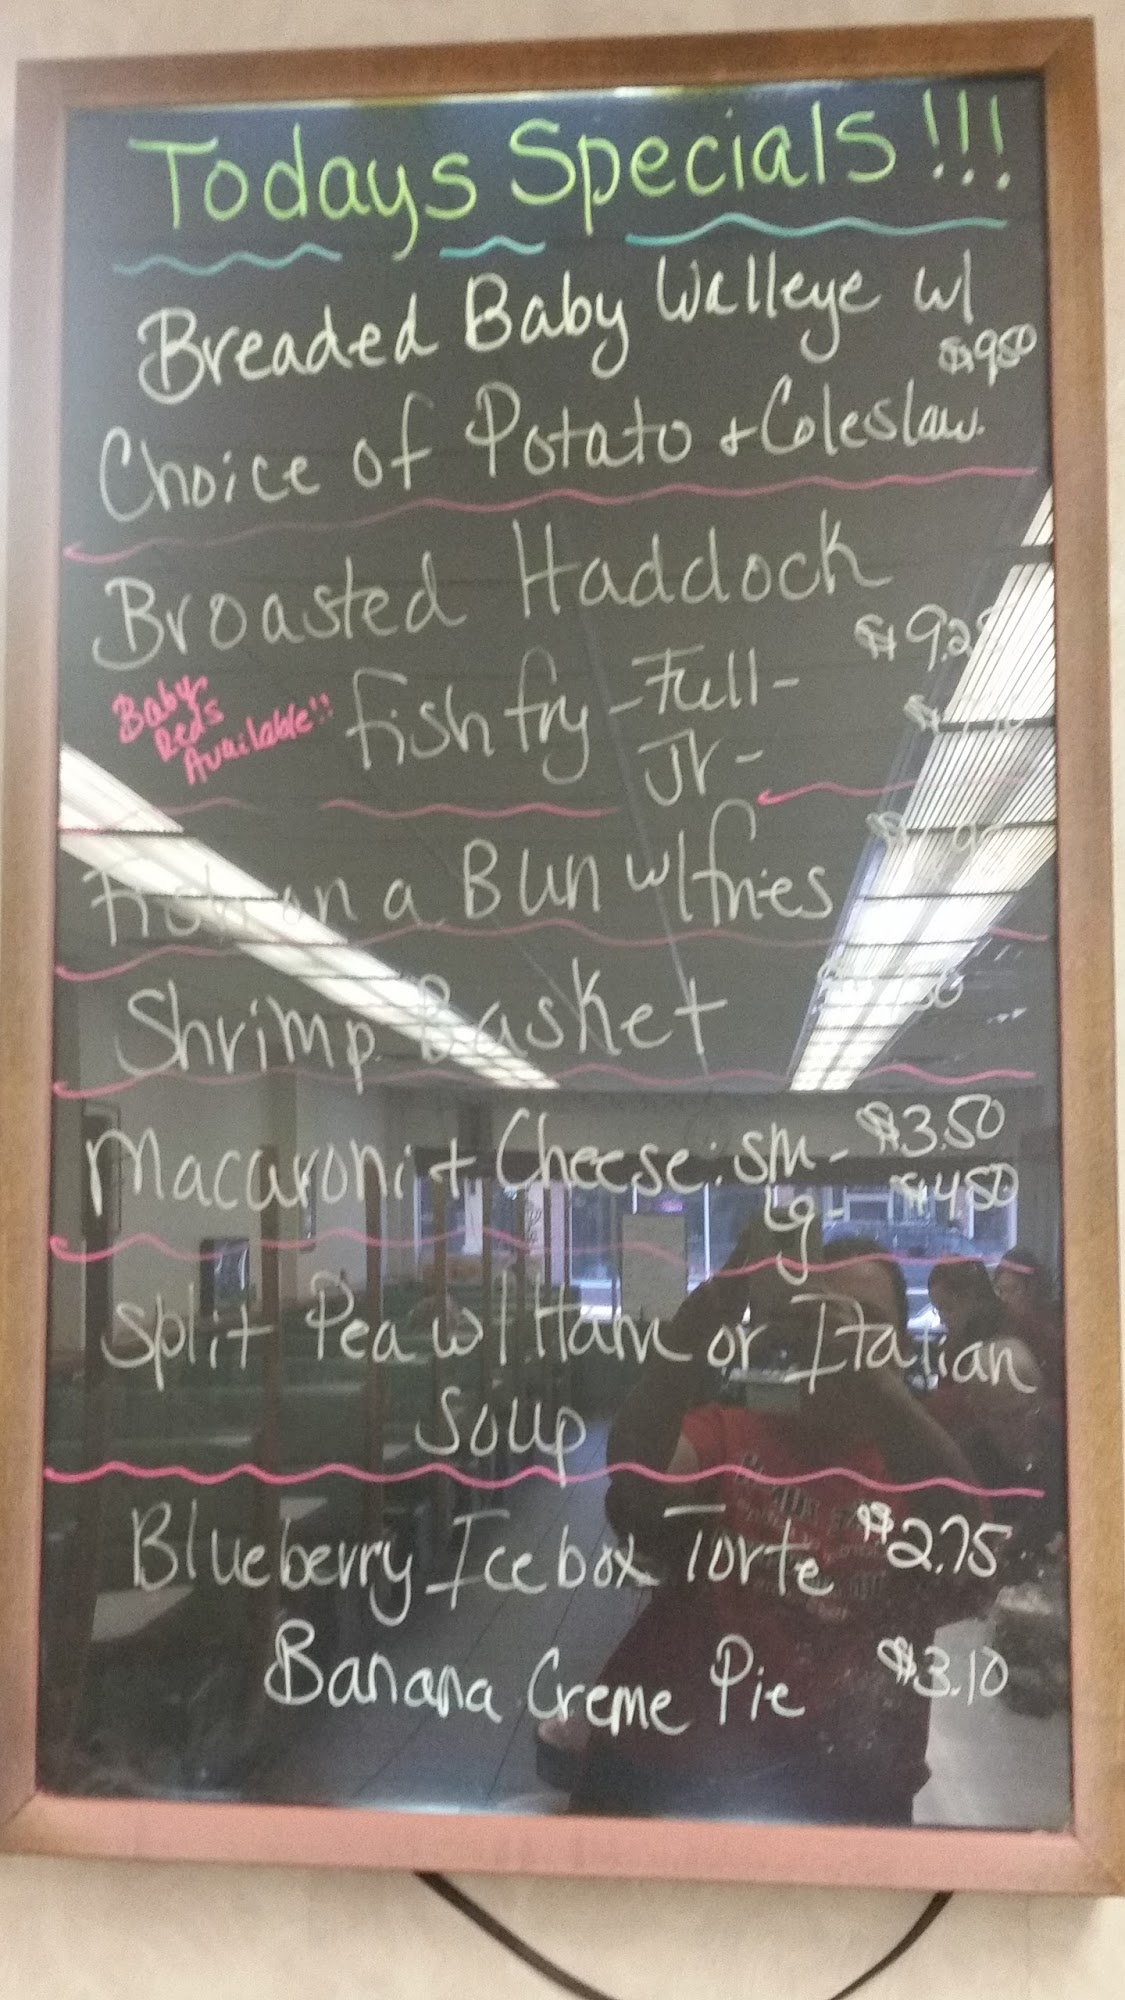 Todays Specials!!!
Breaded Baby Walleye w/
$9.50
Choice of Potato + Coleslaw.
Broasted Haddock
Fish fry - Full - $9.25
Baby Reds Available!!
Jr -
Fish on a Bun w/ fries
Shrimp Basket
Macaroni + Cheese: Sm - $3.50
Lg - $4.50
Split Pea w/ Ham or Italian
Soup
Blueberry Icebox Torte $2.75
Banana Creme Pie $3.10